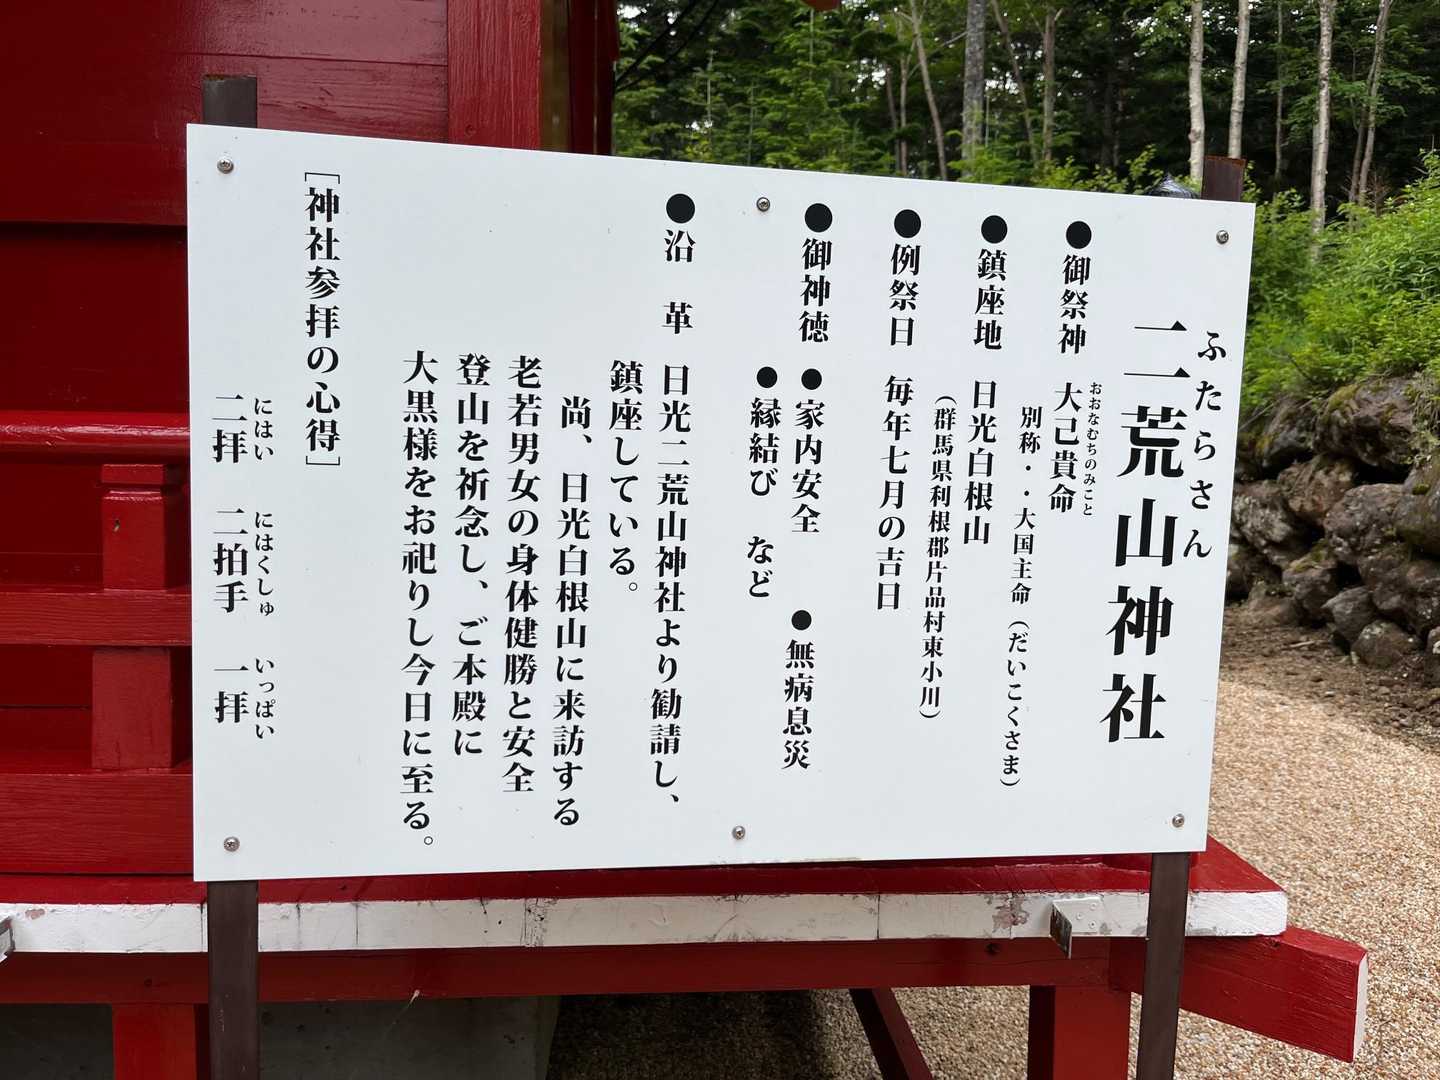 ふたらさん
二荒山神社
●御祭神 大己貴命
おおなむちのみこと
別称・・大国主命(だいこくさま)
●鎮座地 日光白根山
(群馬県利根郡片品村東小川)
●例祭日 毎年七月の吉日
●御神徳 ●家内安全 ●無病息災
●縁結び など
●沿 革 日光二荒山神社より勧請し、
鎮座している。
尚、日光白根山に来訪する
老若男女の身体健勝と安全
登山を祈念し、ご本殿に
大黒様をお祀りし今日に至る。
[神社参拝の心得]
にはい にはくしゅ いっぱい
二拝 二拍手 一拝